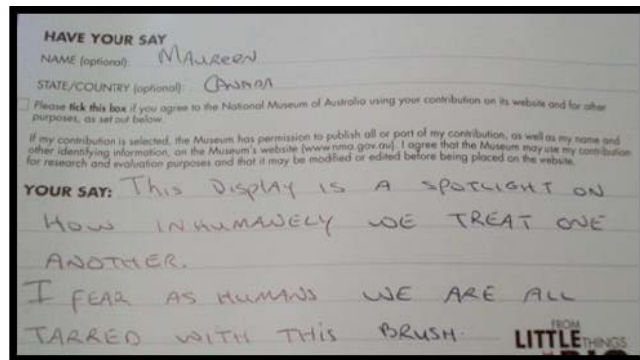 HAVE YOUR SAY
NAME (optional): MAUREEN
STATE/COUNTRY (optional): CANADA
Please tick this box if you agree to the National Museum of Australia using your contribution on its website and for other
purposes, as set out below.
If my contribution is selected, the Museum has permission to publish all or part of my contribution, as well as my name and
other identifying information, on the Museum's website (www.nma.gov.au). I agree that the Museum may use my contribution
for research and evaluation purposes and that it may be modified or edited before being placed on the website.
YOUR SAY: THIS DISPLAY IS A SPOTLIGHT ON
HOW INHUMANELY WE TREAT ONE
ANOTHER.
I FEAR AS HUMANS WE ARE ALL
TARRED WITH THIS BRUSH.
FROM
LITTLE THINGS